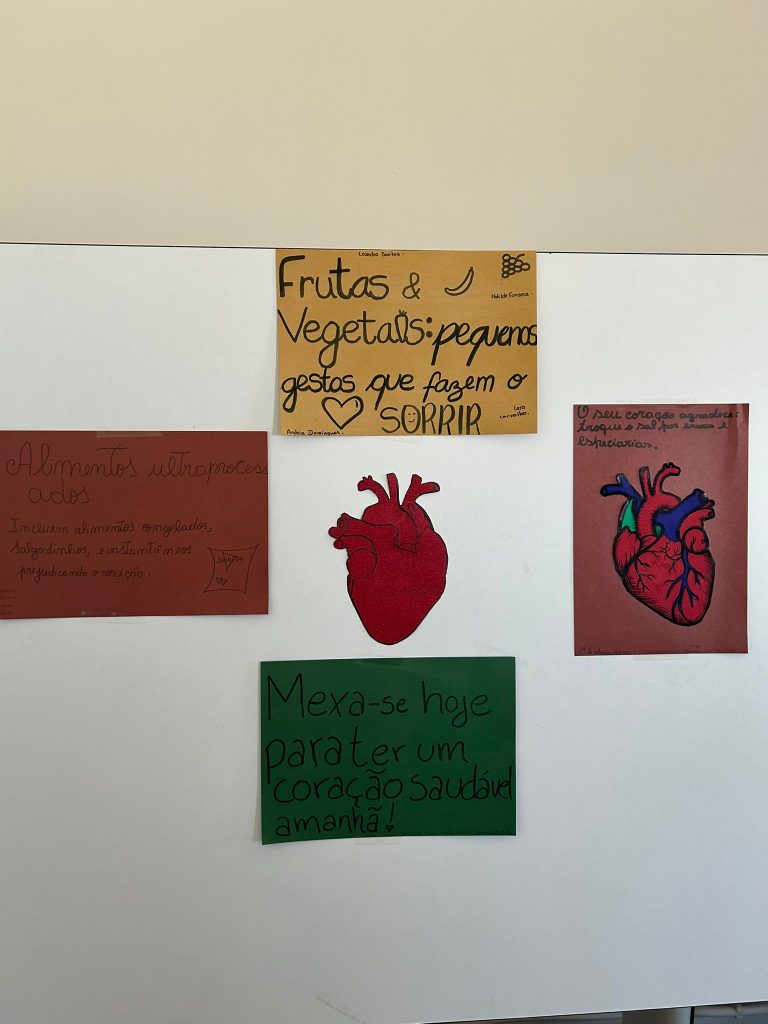 Leandro Santos.
Frutas &
Matilde Fonseca.
Vegetais: pequenos
gestos que fazem o
SORRIR
Lara
carvalho.
Andreia Domingues.
Alimentos ultraprocess
ados
Incluem alimentos congelados,
salgadinhos, e instantâneos
prejudicando o coração.
O seu coração agradece:
troque o sal por ervas e
especiarias.
Mexa-se hoje
para ter um
coração saudável
amanhã!